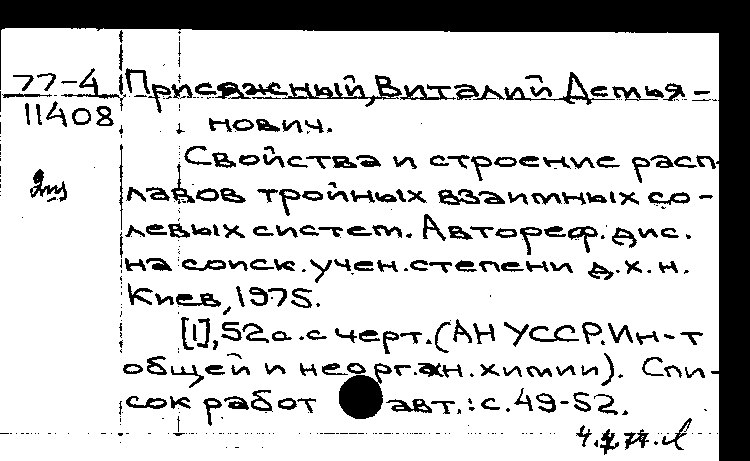 77-4 Присяжный, Виталий Демья-
11408 нович.
Свойства и строение расп-
лавов тройных взаимных со-
левых систем. Автореф. дис.
на соиск. учен. степени д. х. н.
Киев, 1975.
[1], 52 с. с черт. (АН УССР. Ин-т
общей и неорган. химии). Спи-
сок работ авт.: с. 49-52.